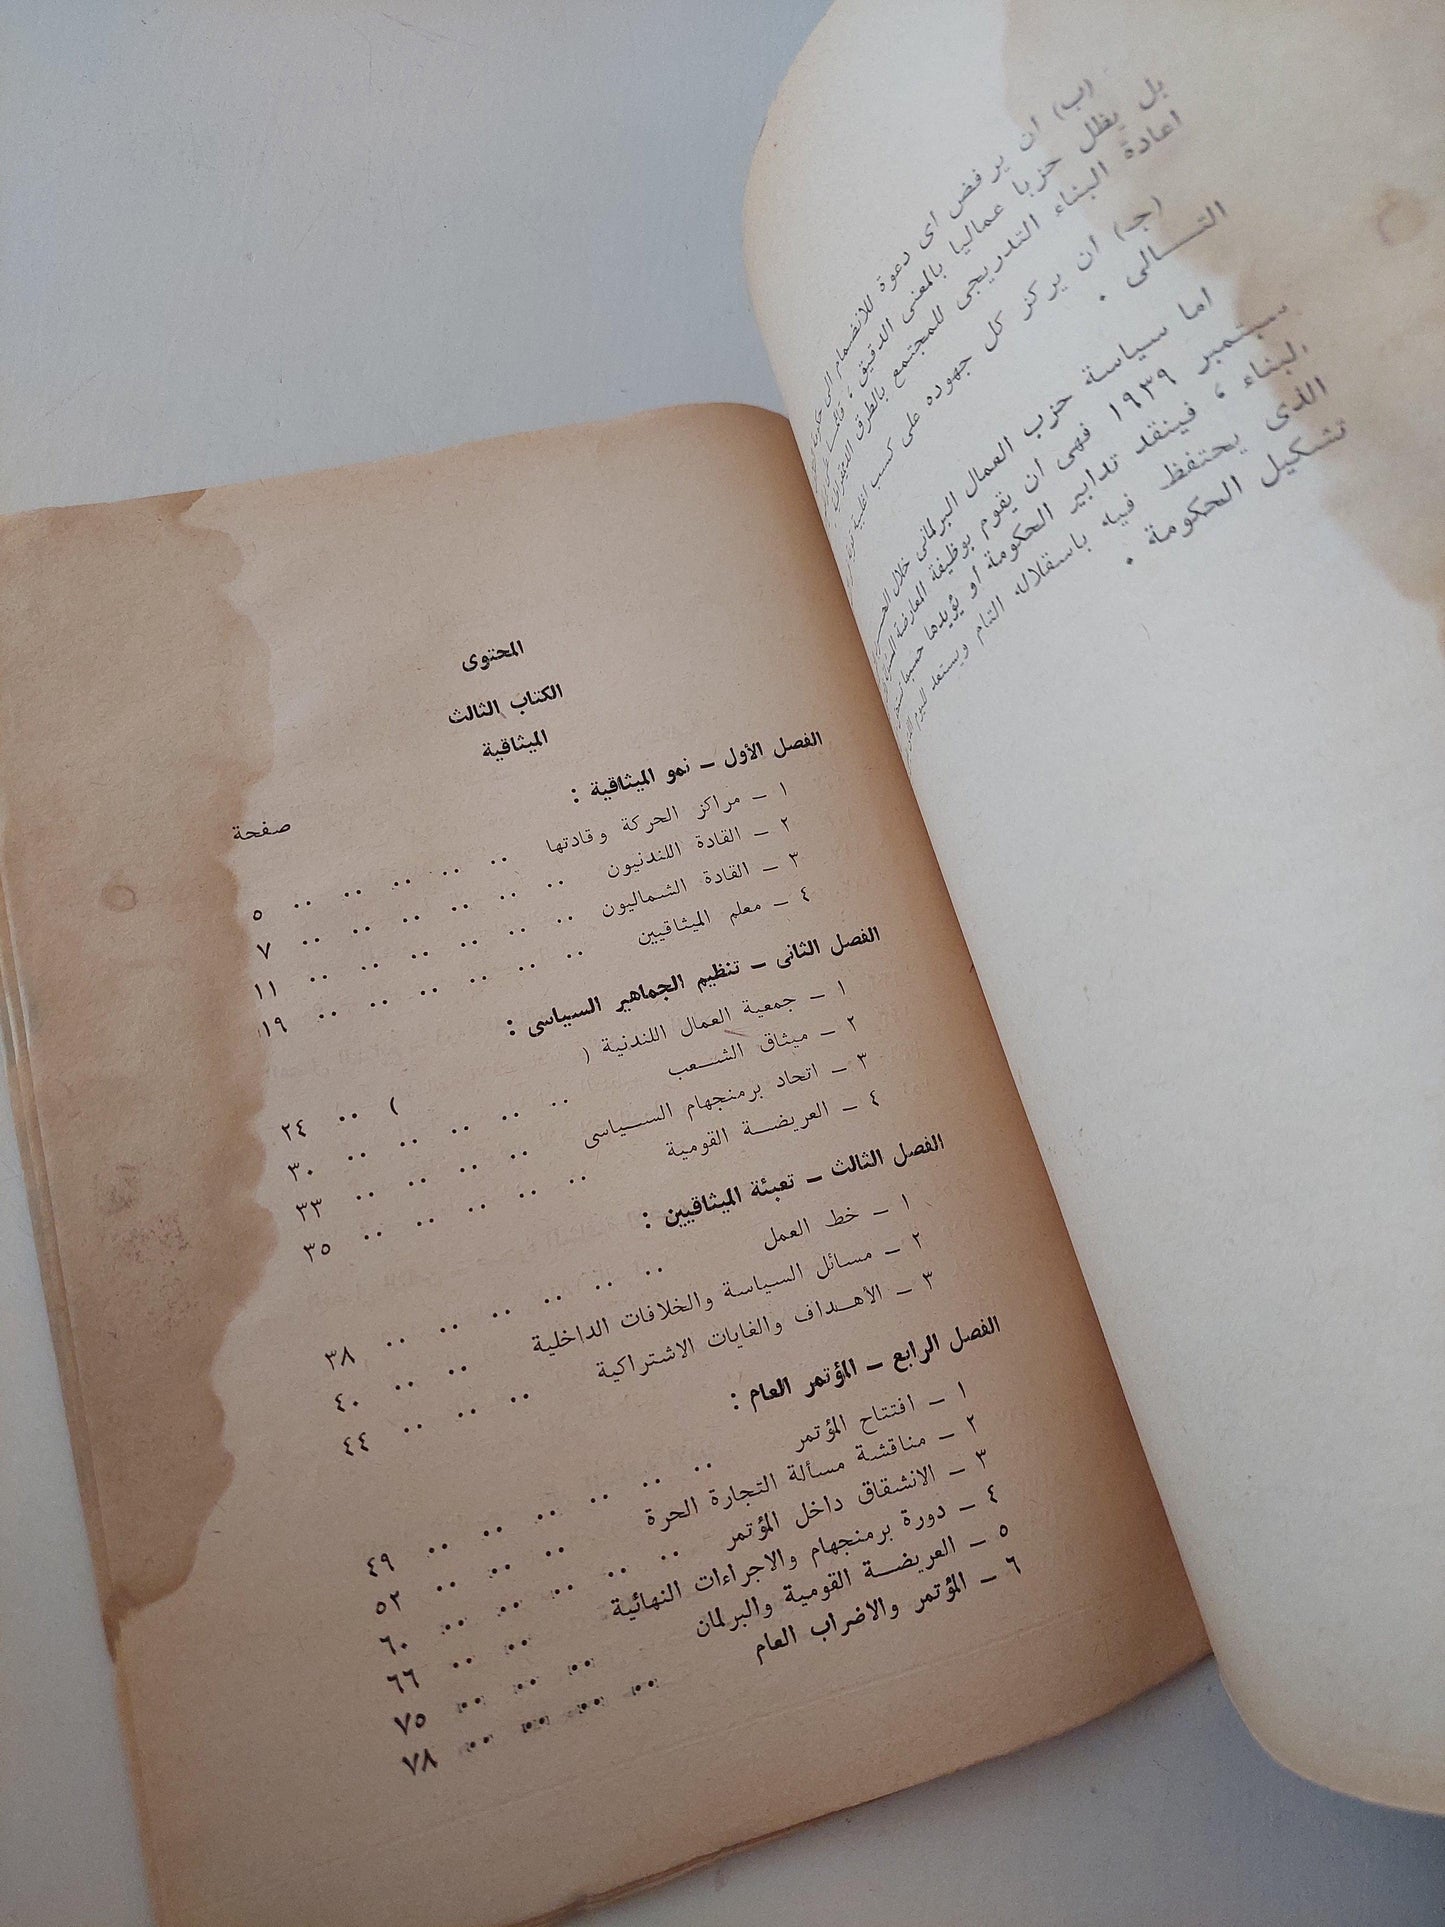 (ب) ان يرفض اى دعوة للانضمام الى
بل يظل حزبا عماليا بالمعنى الدقيق ،
اعادة البناء التدريجى للمجتمع بالطرق
(جـ) ان يركز كل جهوده على كسب اغلبية
التـــالى .
اما سياسة حزب العمال البرلمانى خلال
سبتمبر ١٩٣٩ فهى ان يقوم بوظيفة المعارضة
البناء ، فينقد تدابير الحكومة او يؤيدها حسبما
الذى يحتفظ فيه باستقلاله التام ويستعد لليوم
تشكيل الحكومة .
المحتوى
الكتاب الثالث
الميثاقية
صفحة
الفصل الأول – نمو الميثاقية :
١ – مراكز الحركة وقادتها .. .. .. .. .. ٥
٢ – القادة اللندنيون .. .. .. .. .. .. ٧
٣ – القادة الشماليون .. .. .. .. .. .. ١١
٤ – معلم الميثاقيين .. .. .. .. .. .. ١٩
الفصل الثانى – تنظيم الجماهير السياسى :
١ – جمعية العمال اللندنية ( ) .. ٢٤
٢ – ميثاق الشــعب .. .. .. .. .. ٣٠
٣ – اتحاد برمنجهام الســياسى .. .. .. .. ٣٣
٤ – العريضــة القومية .. .. .. .. .. ٣٥
الفصل الثالث – تعبئة الميثاقيين :
١ – خط العمل .. .. .. .. .. .. ٣٨
٢ – مسائل السياسة والخلافات الداخلية .. .. ٤٠
٣ – الأهــداف والغايات الاشتراكية .. .. .. ٤٤
الفصل الرابع – المؤتمر العام :
١ – افتتاح المؤتمر .. .. .. .. .. .. ٤٩
٢ – مناقشة مسألة التجارة الحرة .. .. .. ٥٢
٣ – الانشقاق داخل المؤتمر .. .. .. .. .. ٦٠
٤ – دورة برمنجهام والاجراءات النهائية .. .. ٦٦
٥ – العريضــة القومية والبرلمان .. .. .. ٧٥
٦ – المؤتمر والاضراب العام .. .. .. .. ٧٨